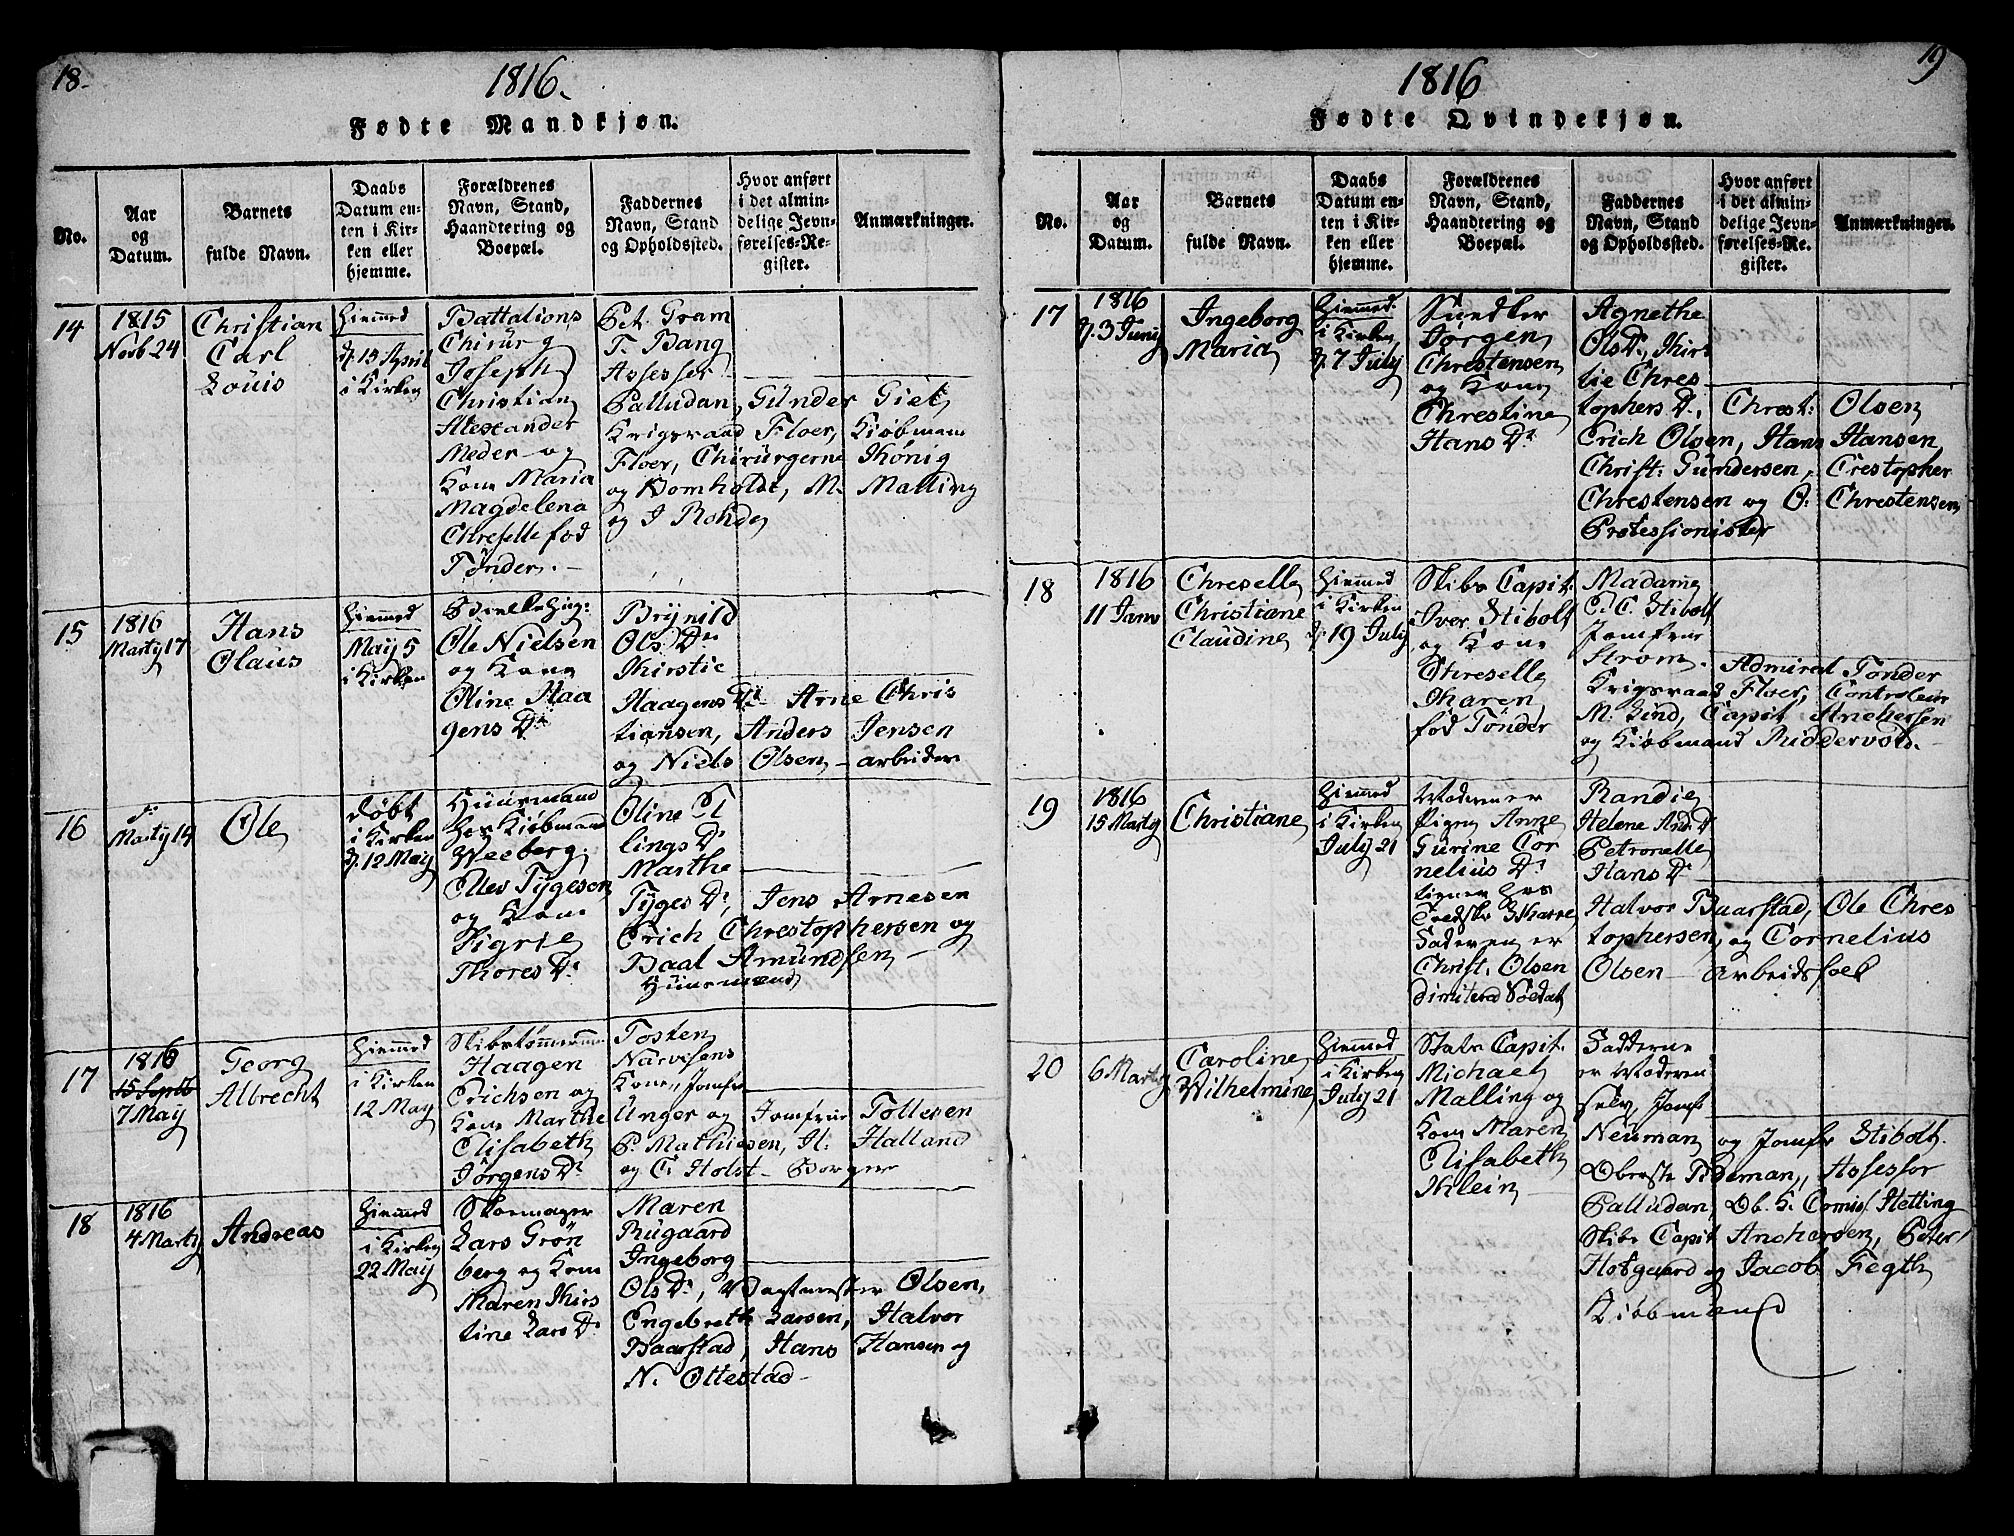 18.
1816.
Fødte Mandkjøn.
No.
Aar
og
Datum.
Barnets
fulde Navn.
Daabs
Datum en-
ten i Kir-
ken eller
hjemme.
Forældrenes
Navn, Stand,
Haandtering og
Boepæl.
Faddernes
Navn, Stand
og Opholdssted.
Hvor anført
i det almin-
delige Jevn-
førelses-Re-
gister.
Anmærkninger.
14
1815
Novb 24
Christian
Carl
Louis
Hiemmed
d. 15 April
i Kirken
Battalions
Chirurg
Joseph
Christian
Alexander
Meder og
Kone Maria
Magdelena
Chreselle fød
Tønder.
Pet. Gram
T. Bang
Assesser
Palludan, Günder Giet
Krigsraad Floer, Kiøbmann
Floer, Chirurgerne König
og Bomholdt, M. Malling
og J Rohde
15
1816
Marty 17
Hans
Olaus
Hiemmed
May 5
i Kirken
Ole Nielsen
og Kone
Oline Haa
gens Dr
Brynild
Ols Dr
Kirstie
Haagens Dr Arne Chris
tiansen, Anders Jensen
og Niels Olsen - arbeidere
16
Marty 14
Ole
døbt
i Kirken
d. 12 May
Huusmand
hos Kiøbmand
Weeberg
Elev Tygesen
og Kone
Sigrie
Thores Dr
Oline El
lings Dr
Marthe
Tyges Dr, Jens Arnesen
Erich Chrestophersen og
Paal Amundsen
Huusmænd
17
1816
15 Septb
7 May
Georg
Albrecht
Hiemmed
i Kirken
12 May
Skibstømmermann
Haagen
Erichsen og
Kone Marthe
Elisabeth
Jørgens Dr
Tosten
Narvesens
Kone, Jomfr
Unger og Jomfrue Tollesen
P. Mathiesen, H. Halland
og C. Holst - Borgere
18
1816
4 Marty
Andreas
Hiemmed
i Kirken
22 May
Skoemager
Lars Grøn
berg og Kone
Maren Kirs
tine Lars Dr
Maren
Rugaard
Ingeborg
Ols Dr, Vagtmester Olsen,
Engebreth Larsen, Halvor
Baarstad, Hans Hansen og
N. Ottestad
19
1816
Fødte Qvindekjøn.
No.
Aar
og
Datum.
Barnets
fulde Navn.
Daabs
Datum en-
ten i Kir-
ken eller
hjemme.
Forældrenes
Navn, Stand,
Haandtering og
Boepæl.
Faddernes
Navn, Stand
og Opholdssted.
Hvor anført
i det almin-
delige Jevn-
førelses-Re-
gister.
Anmærkninger.
17
1816
d. 3 Juny
Ingeborg
Maria
Hiemmed
i Kirken
d. 7 July
Snedker
Jørgen
Chrestensen
og Kone
Chrestine
Hans Dr
Agnethe
Ols Dr, Kirs
tie Chres
tophers Dr, Christ: Olsen
Erich Olsen, Hans Hansen
Christ: Gundersen, Crestopher
Chrestensen og O: Chrestensen
Professionister
18
1816
11 Janv
Chreselle
Christiane
Claudine
Hiemmed
i Kirken
d. 19 July
Skibs Capit:
Iver Stibolt
og Kone
Chreselle
Karen
fød Tønder
Madame
C. C. Stibolt
Jomfrue
Strøm. Admiral Tønder
Krigsraad Floer, Controleur
M. Lind, Capit Anchersen
og Kiøbmand Riddervold.
19
1816
15 Marty
Christiane
Hiemmed
i Kirken
July 21
Moderen er
Pigen Anne
Gurine Cor
nelius Dr
tiener hos
Fredsk Skarre
Faderen er
Christ. Olsen
dimiterd Soldat
Randie
Helene And Dr
Petronelle
Hans Dr
Halvor Baarstad, Ole Chres
tophersen, og Cornelius
Olsen - arbeidsfolk
20
6 Marty
Caroline
Wilhelmine
Hiemmed
i Kirken
July 21
Stabs Capit.
Michael
Malling og
Kone Maren
Elisabeth
Klein
Fadderne
er Moderen
selv, Jomf
Neuman og Jomfr Stibolt.
Oberste Tideman, Assessor
Palludan, Ob. K. Comis. Hetting
Skibs Capit Anchersen, Peter
Hofgaard og Jacob Fegth
Kiøbmænd